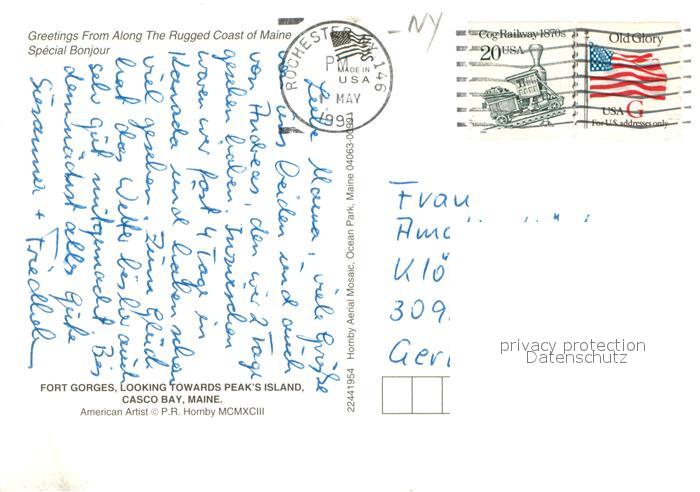 Greetings From Along The Rugged Coast of Maine
Spécial Bonjour
Liebe Mama, viele Grüße
von uns beiden und auch
von Andreas, den wir 2 Tage
gesehen haben. Inzwischen
waren wir fast 4 Tage in
Kanada und haben schon
viel gesehen. Zum Glück
hat das Wetter bisher auch
sehr gut mitgemacht. Bis
demnächst alles Gute
Susanne + Friedhelm
FORT GORGES, LOOKING TOWARDS PEAK'S ISLAND,
CASCO BAY, MAINE.
American Artist © P.R. Hornby MCMXCIII
22441954 Hornby Aerial Mosaic, Ocean Park, Maine 04063-0093
ROCHESTER NY 146
PM
MADE IN
USA
MAY
-NY
Cog Railway 1870s
20 USA
Old Glory
USA G
For U.S. addresses only
Frau
Klö
309.
Ger
privacy protection
Datenschutz